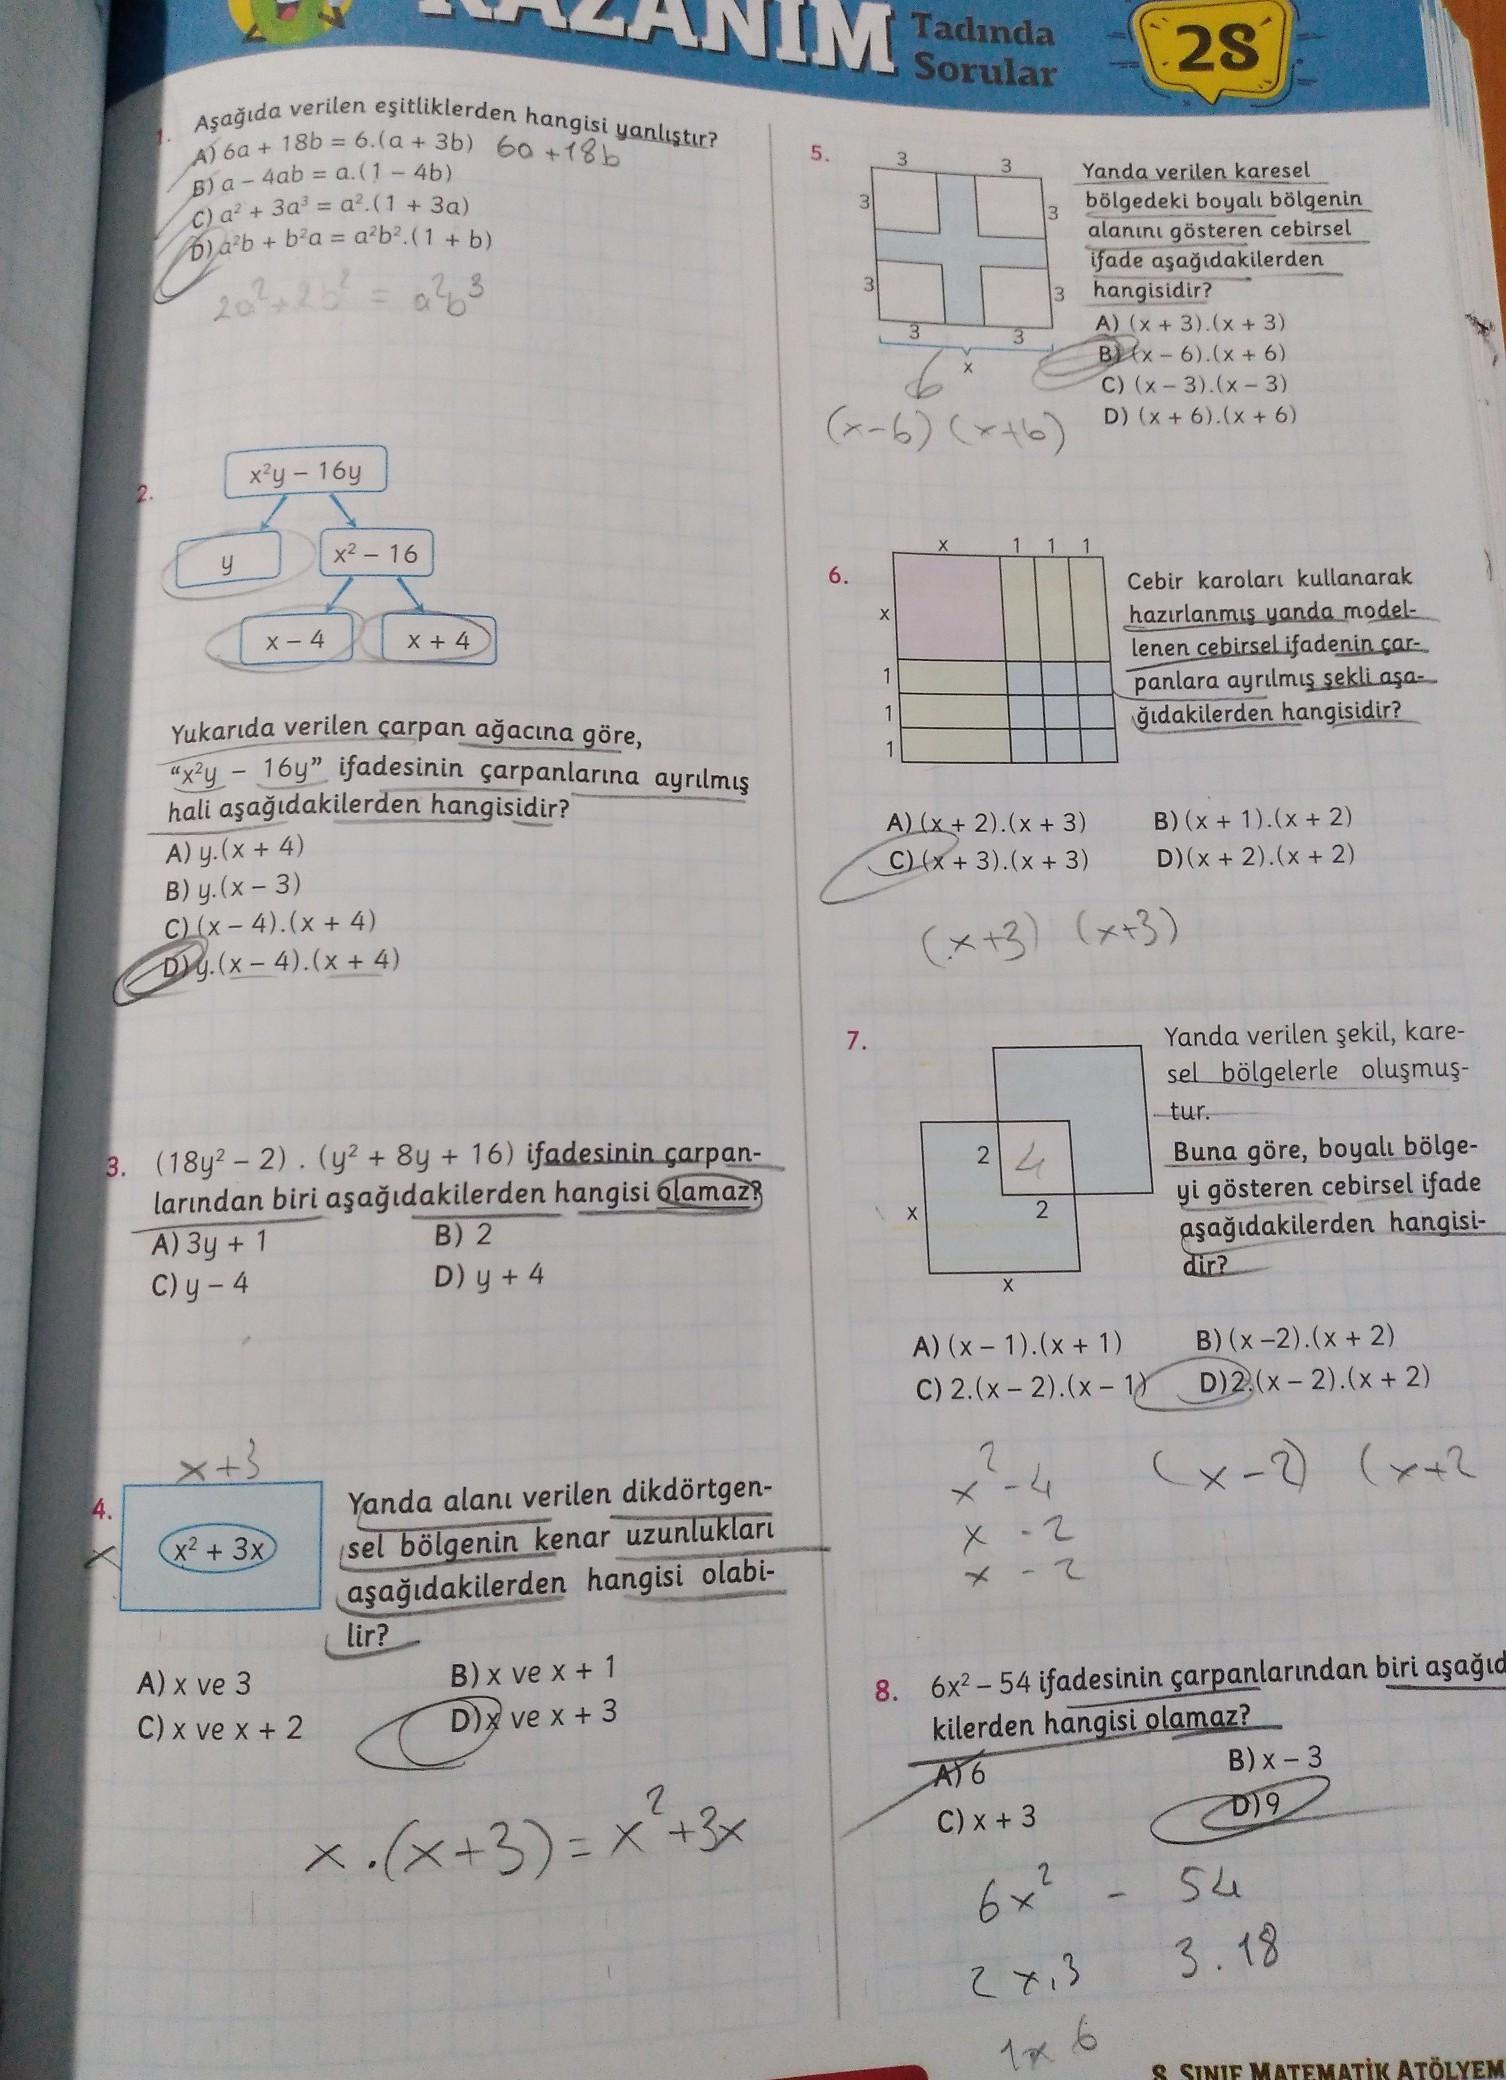 KAZANIM
Tadında
Sorular
28
1. Aşağıda verilen eşitliklerden hangisi yanlıştır?
A) 6a + 18b = 6.(a + 3b) 6a + 18b
B) a – 4ab = a.(1 – 4b)
C) a² + 3a³ = a².(1 + 3a)
D) a²b + b²a = a²b².(1 + b)
2a² + 2b² = a²b³
2.
x²y – 16y
y
x² – 16
x – 4
x + 4
Yukarıda verilen çarpan ağacına göre,
“x²y – 16y” ifadesinin çarpanlarına ayrılmış
hali aşağıdakilerden hangisidir?
A) y.(x + 4)
B) y.(x – 3)
C) (x – 4).(x + 4)
D) y.(x – 4).(x + 4)
3. (18y² – 2) . (y² + 8y + 16) ifadesinin çarpan-
larından biri aşağıdakilerden hangisi olamaz?
A) 3y + 1 B) 2
C) y – 4 D) y + 4
x+3
4.
x
x² + 3x
Yanda alanı verilen dikdörtgen-
sel bölgenin kenar uzunlukları
aşağıdakilerden hangisi olabi-
lir?
A) x ve 3 B) x ve x + 1
C) x ve x + 2 D) x ve x + 3
x . (x+3) = x² + 3x
5.
3 3
3 3
3 3
3 3
x
6
Yanda verilen karesel
bölgedeki boyalı bölgenin
alanını gösteren cebirsel
ifade aşağıdakilerden
hangisidir?
A) (x + 3).(x + 3)
B) (x – 6).(x + 6)
C) (x – 3).(x – 3)
D) (x + 6).(x + 6)
(x-6) (x+6)
6.
x 1 1 1
x
1
1
1
Cebir karoları kullanarak
hazırlanmış yanda model-
lenen cebirsel ifadenin çar-
panlara ayrılmış şekli aşa-
ğıdakilerden hangisidir?
A) (x + 2).(x + 3) B) (x + 1).(x + 2)
C) (x + 3).(x + 3) D)(x + 2).(x + 2)
(x+3) (x+3)
7.
2 4
x 2
x
Yanda verilen şekil, kare-
sel bölgelerle oluşmuş-
tur.
Buna göre, boyalı bölge-
yi gösteren cebirsel ifade
aşağıdakilerden hangisi-
dir?
A) (x – 1).(x + 1) B) (x –2).(x + 2)
C) 2.(x – 2).(x – 1) D)2.(x – 2).(x + 2)
x² - 4 (x-2) (x+2
x - 2
x - 2
8. 6x² – 54 ifadesinin çarpanlarından biri aşağıd
kilerden hangisi olamaz?
A) 6 B) x – 3
C) x + 3 D) 9
6x² - 54
2x.3 3.18
1x 6
8. SINIF MATEMATİK ATÖLYEM